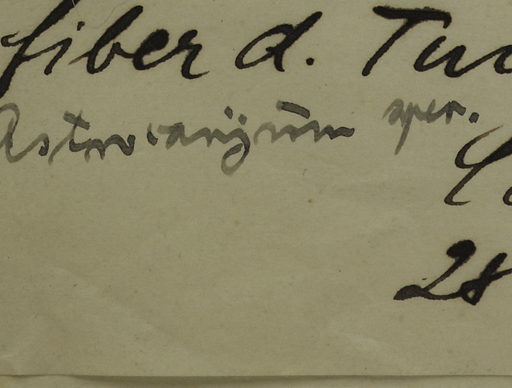 fiber d. Tu
Astrocaryum spec.
28